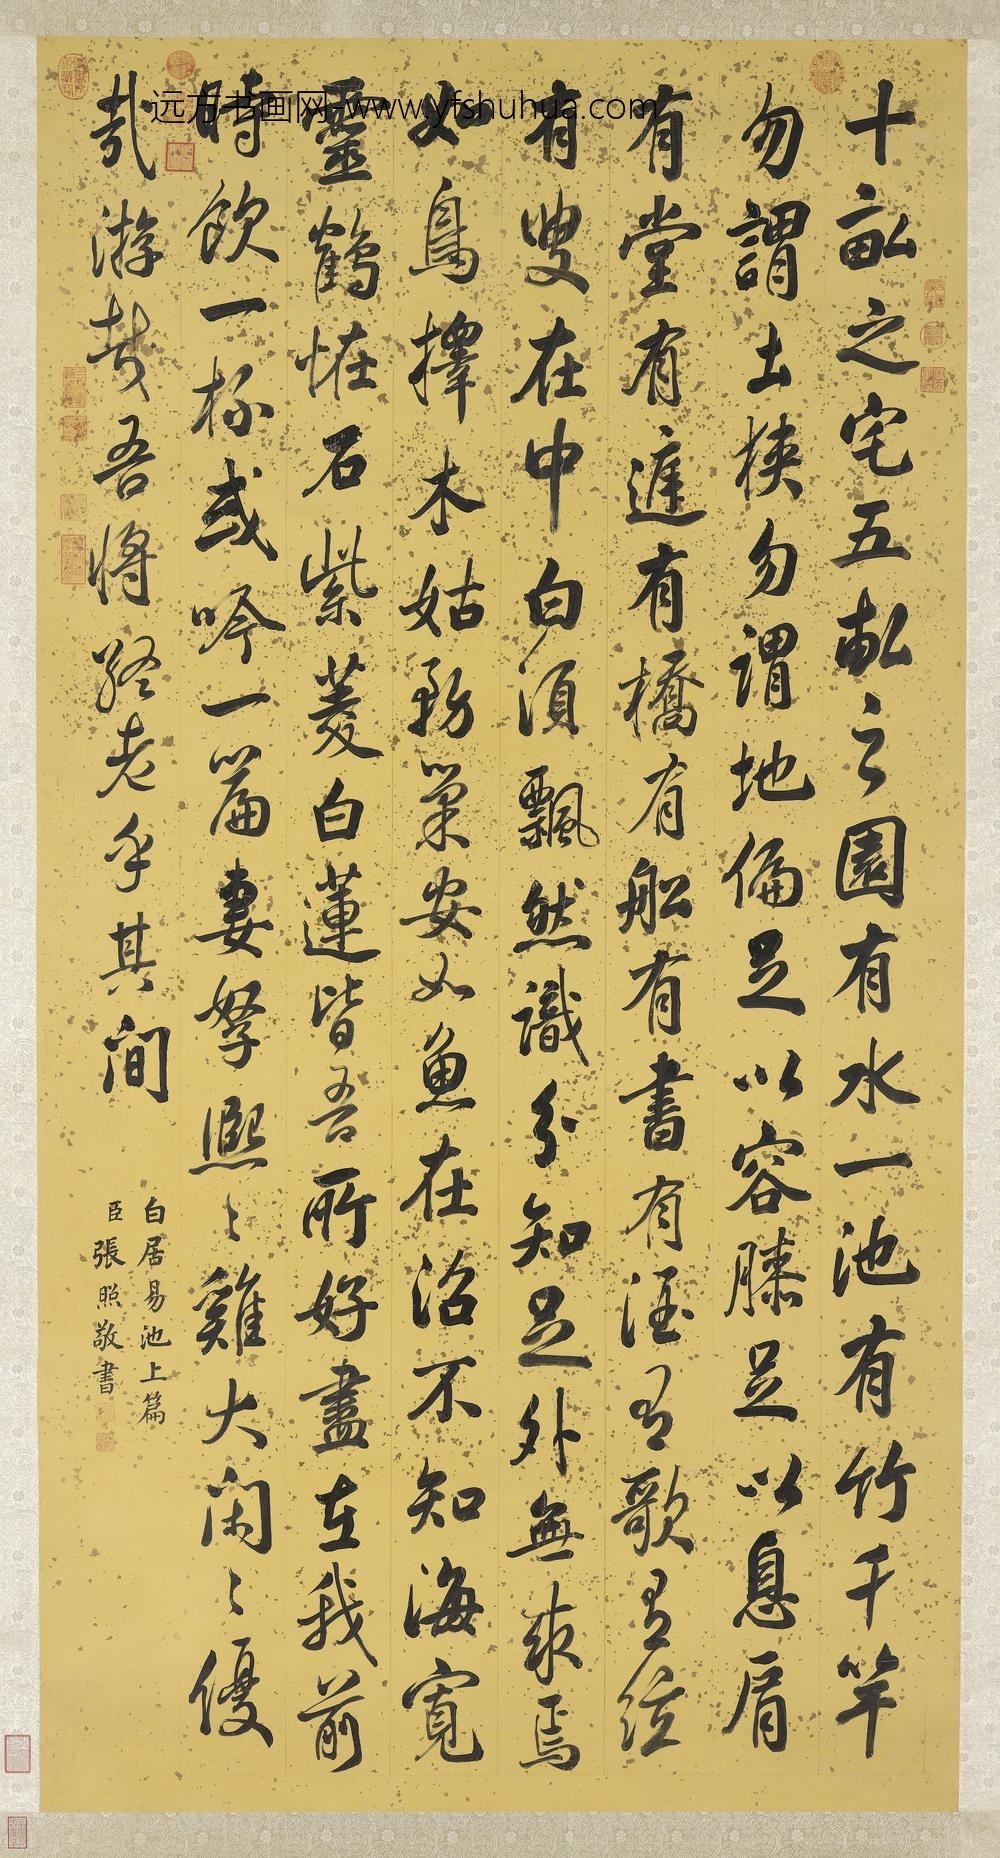 十畝之宅五畝之園有水一池有竹千竿
勿謂土狹勿謂地偏足以容膝足以息肩
有堂有庭有橋有船有書有酒有歌有弦
有叟在中白須飄然識分知足外無求焉
如鳥擇木姑務巢安如魚在沼不知海寬
靈鶴怪石紫菱白蓮皆吾所好盡在我前
時飲一杯或吟一篇妻孥熙〻雞犬閑〻優
哉游哉吾將終老乎其間
白居易池上篇
臣張照敬書
远方书画网-www.yfshuhua.com